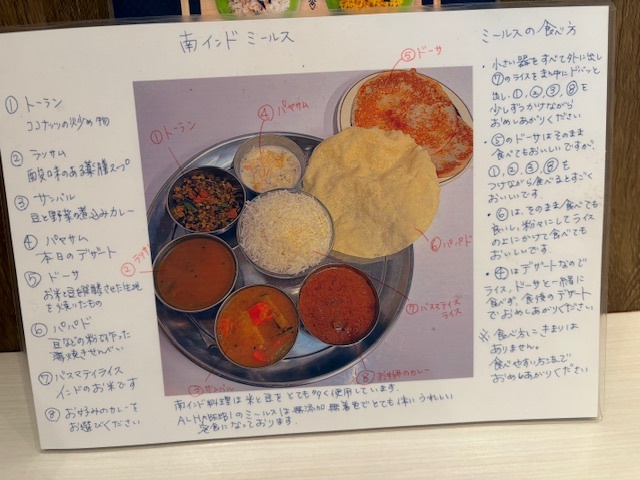 南インド ミールス
① トーラン
ココナッツの炒め物
② ラッサム
酸味のある薬膳スープ
③ サンバル
豆と野菜の煮込みカレー
④ パヤサム
本日のデザート
⑤ ドーサ
お米と豆を発酵させた生地
を焼いたもの
⑥ パパド
豆などの粉で作った
薄焼きせんべい
⑦ バスマティライス
インドのお米です
⑧ お好みのカレーを
お選びください
①トーラン
④パヤサム
⑤ドーサ
②ラッサ
⑥パパド
⑦バスマティライス
ライス
③サンバル
⑧お好みのカレー
南インド料理は米と豆をとても多く使用しています。
のミールスは無添加 無着色でとても体にうれしい
定食になっております
ミールスの食べ方
・小さい器をすべて外に出し
⑦のライスをまん中にドバッと
出し、①,②,③,⑧を
少しずつかけながら
おめしあがりください
・⑤のドーサはそのまま
食べてもおいしいですが、
①,②,③,⑧を
つけながら食べるとすごく
おいしいです。
・⑥は、そのまま食べても
良いし、粉々にしてライス
の上にかけて食べても
おいしいです。
・④はデザートなので
ライス,ドーサと一緒に
食べず、食後のデザート
でおめしあがりください
※ 食べ方にきまりは
ありません。
食べやすい方法で
おめしあがりください